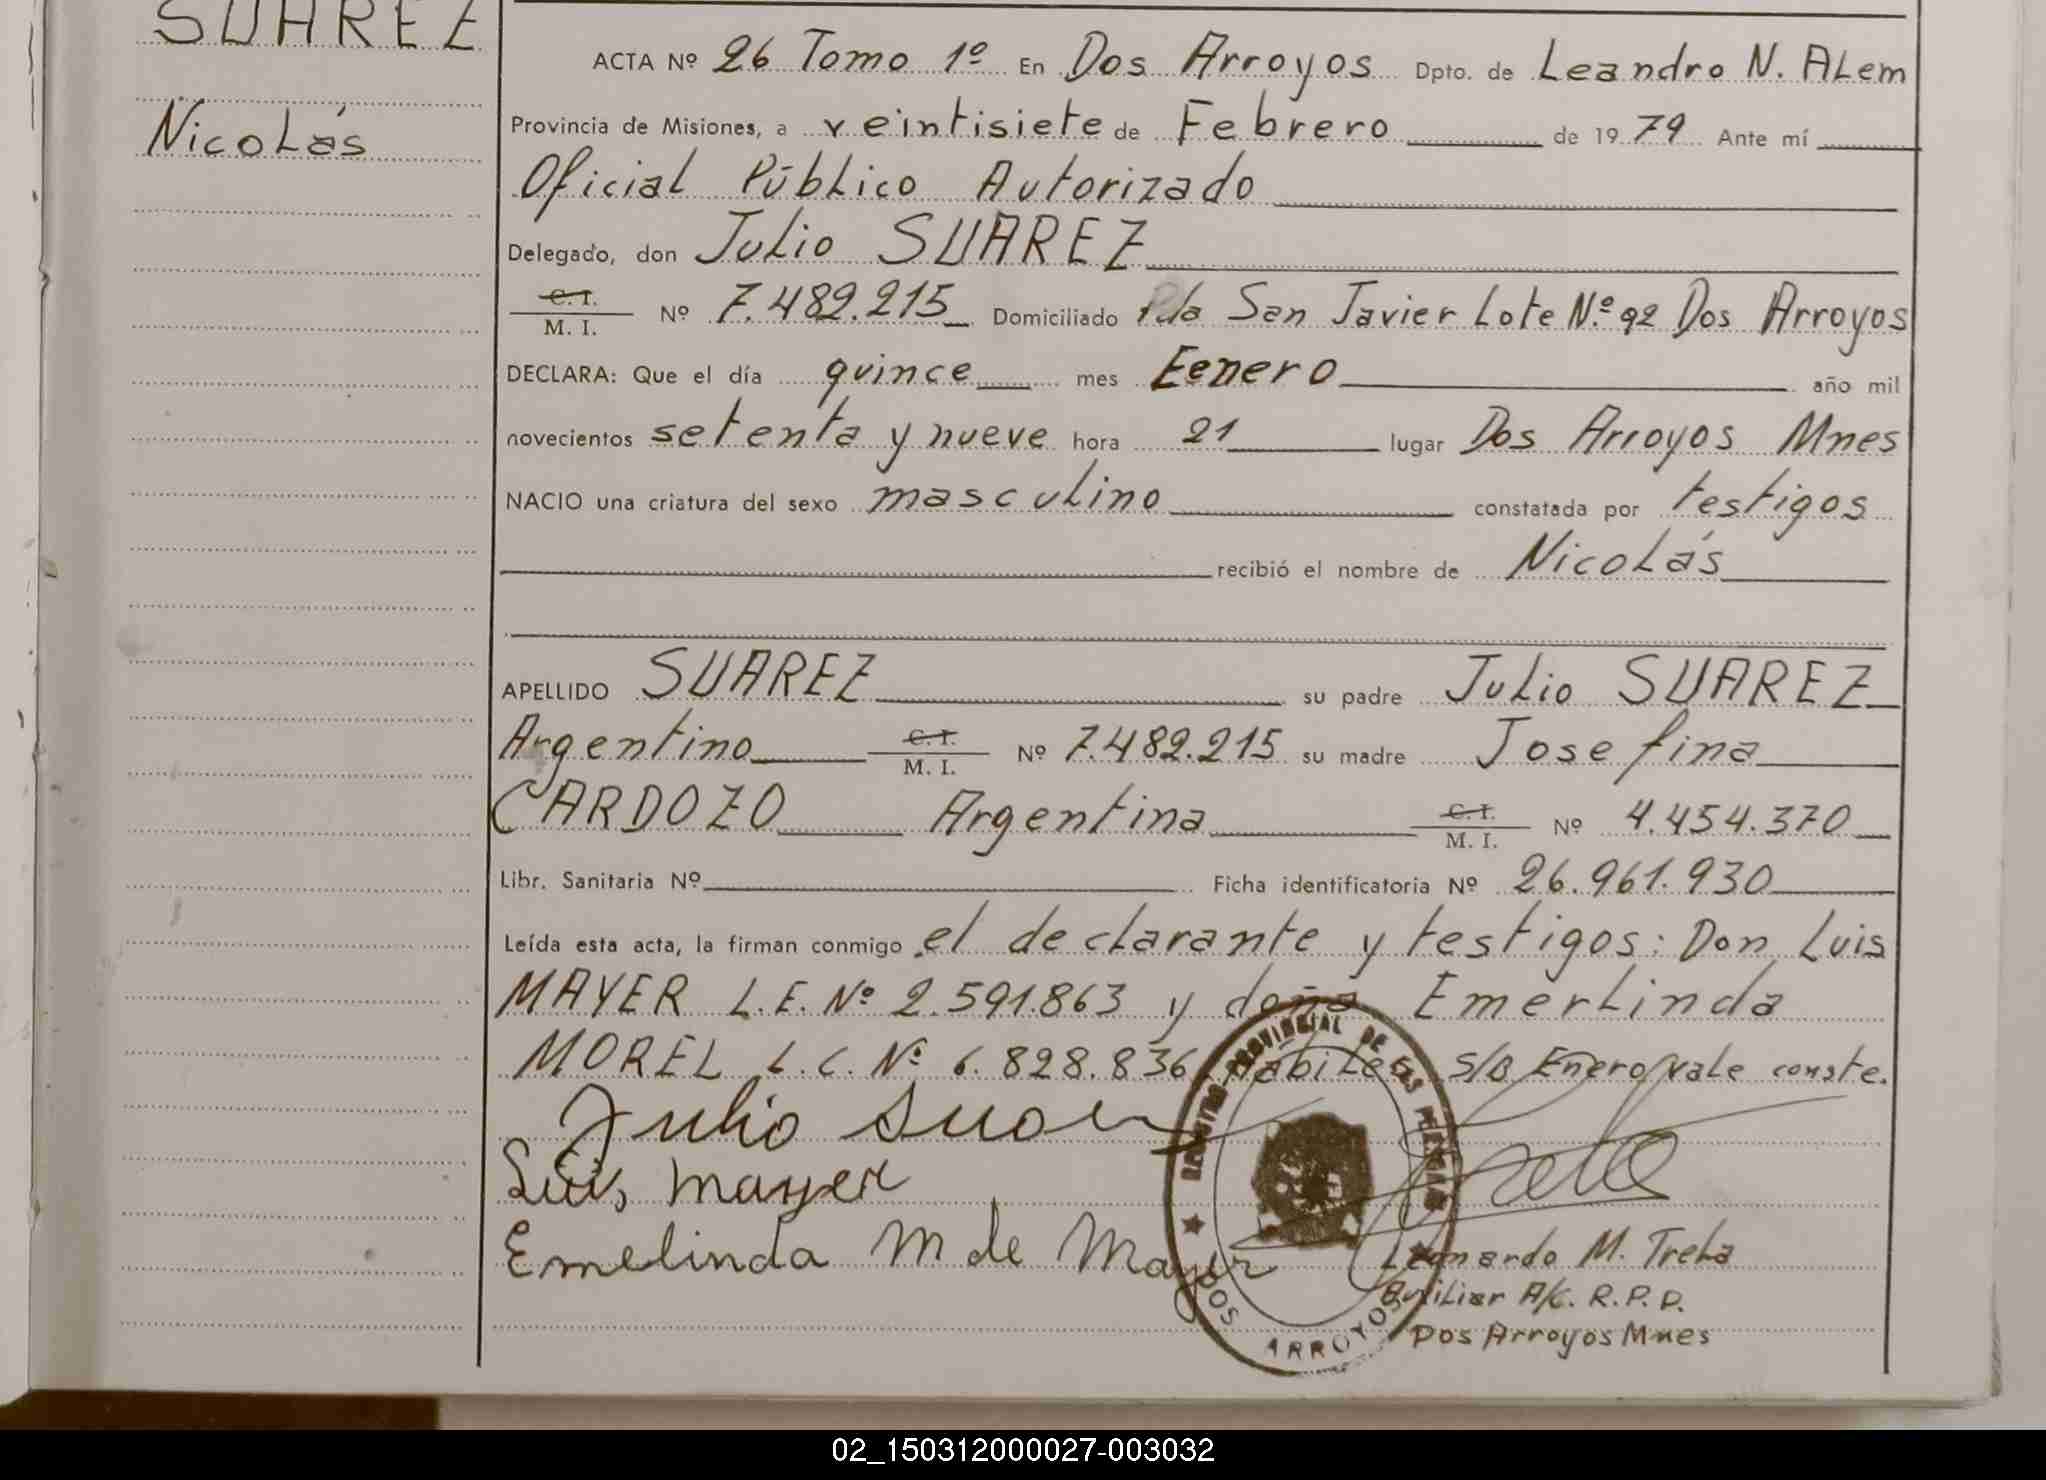 SUAREZ
Nicolás
ACTA Nº 26 Tomo 1º En Dos Arroyos Dpto. de Leandro N. ALem
Provincia de Misiones, a veintisiete de Febrero de 1979 Ante mí
Oficial Público Autorizado
Delegado, don Julio SUAREZ
C. I.
M. I. Nº 7.482.215 Domiciliado Pda San Javier Lote Nº 92 Dos Arroyos
DECLARA: Que el día quince mes Eenero año mil
novecientos setenta y nueve hora 21 lugar Dos Arroyos Mnes
NACIO una criatura del sexo masculino constatada por testigos
recibió el nombre de Nicolás
APELLIDO SUAREZ su padre Julio SUAREZ
Argentino C. I. M. I. Nº 7.482.215 su madre Josefina
CARDOZO Argentina C. I. M. I. Nº 4.454.370
Libr. Sanitaria Nº Ficha identificatoria Nº 26.961.930
Leída esta acta, la firman conmigo el declarante y testigos: Don Luis
MAYER L.E. Nº 2.591.863 y doña Emerlinda
MOREL L.C. Nº 6.828.836 habiles S/B Enero/vale conste.
Julio Suarez
Luis mayer
Emelinda M de Mayer
REGISTRO PROVINCIAL DE LAS PERSONAS
DOS ARROYOS
Leonardo M. Trela
Auxiliar A/C. R.P.P.
Dos Arroyos Mnes
02_150312000027-003032